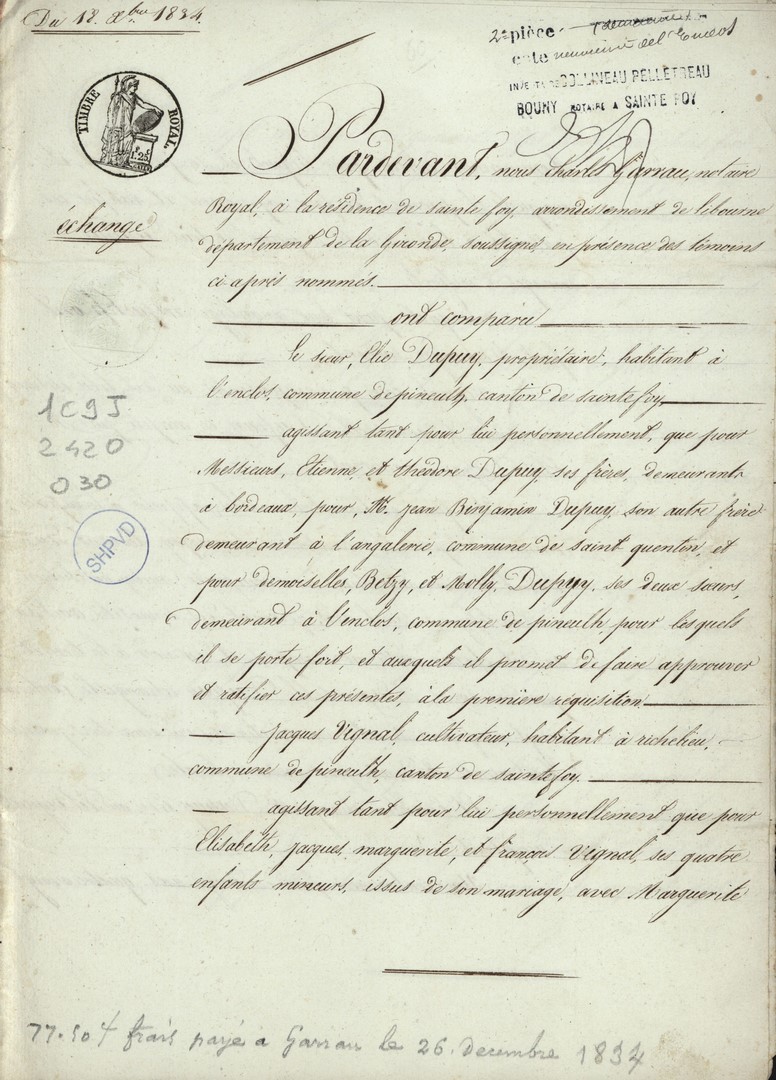 Du 18. Xbre 1834.
2e pièce
cote
INVENTAIRE COLLINEAU PELLETREAU
BOUNY NOTAIRE A SAINTE FOY
TIMBRE ROYAL
1f. 25c
échange
Pardevant, nous Charles Garrau, notaire
Royal, à la résidence de sainte foy, arrondissement de libourne
département de la Gironde, soussigné, en présence des témoins
ci-après nommés.
ont comparu
le sieur, Elie Dupuy, propriétaire, habitant à
l'enclos, commune de pineulh, canton de sainte foy
agissant tant pour lui personnellement, que pour
Messieurs, Etienne, et théodore Dupuy, ses frères, demeurants
à bordeaux, pour, M. Jean Binjamin Dupuy, son autre frère
demeurant à l'angalerie, commune de saint quentin, et
pour demoiselles, Betzy, et Molly, Dupuy, ses deux sœurs,
demeurant à l'enclos, commune de pineulh, pour lesquels
il se porte fort, et auxquels il promet de faire approuver
et ratifier ces présentes, à la première réquisition
Jacques Vignal, cultivateur, habitant à richelieu,
commune de pineulh, canton de sainte foy.
agissant tant pour lui personnellement que pour
Elisabeth, jacques, marguerite, et françois Vignal, ses quatre
enfants mineurs, issus de son mariage, avec Marguerite
1C9J
2420
030
SHPVD
77.50f frais payé a Garrau le 26. decembre 1834